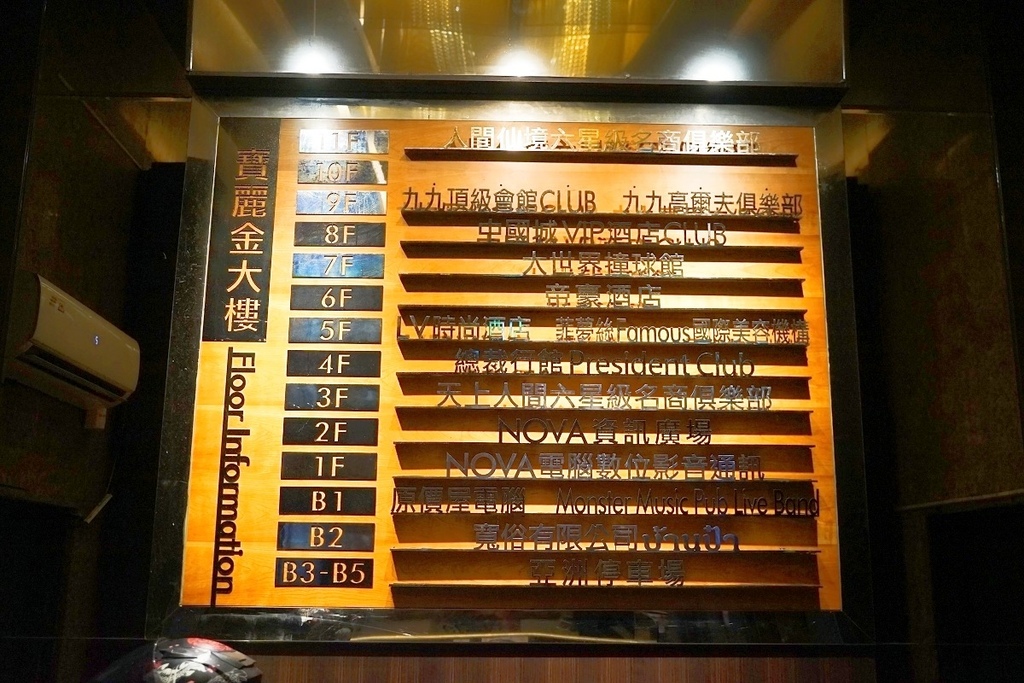 寶麗金大樓
Floor Information
11F 人間仙境六星級名商俱樂部
10F
9F 九九頂級會館CLUB 九九高爾夫俱樂部
8F 中國城VIP酒店CLUB
7F 大世界撞球館
6F 帝豪酒店
5F LV時尚酒店 菲夢絲Famous國際美容機構
4F 總裁行館President Club
3F 天上人間六星級名商俱樂部
2F NOVA資訊廣場
1F NOVA電腦數位影音通訊
B1 原價屋電腦 Monster Music Pub Live Band
B2 寬俗有限公司บ้านป้า
B3-B5 亞洲停車場